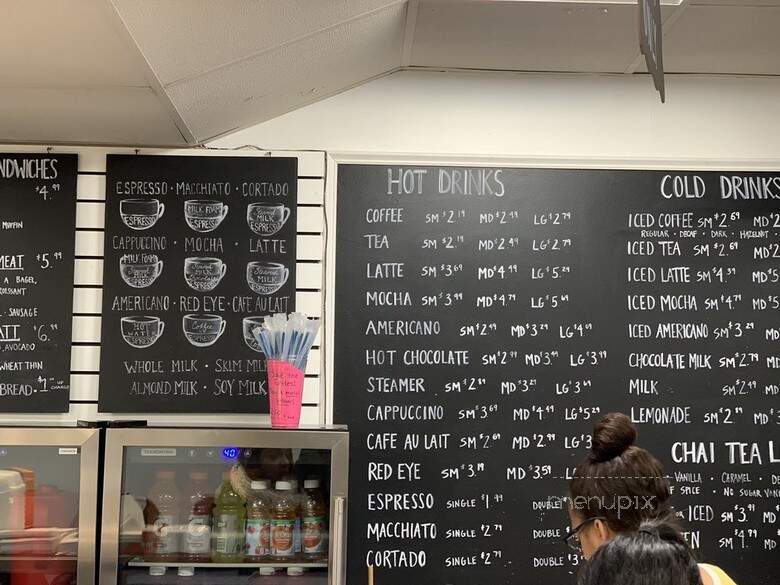 NDWICHES
$4.99
MUFFIN
MEAT $5.99
A BAGEL,
- SAUSAGE
$6.99
AVOCADO
WHEAT THIN
BREAD
ESPRESSO · MACCHIATO · CORTADO
ESPRESSO
MILK FOAM
ESPRESSO
MILK
ESPRESSO
CAPPUCCINO · MOCHA · LATTE
MILK FOAM
MILK
AMERICANO · RED EYE · CAFE AU LAIT
HOT WATER
ESPRESSO
Coffee
ESPRESSO
WHOLE MILK · SKIM MIL
ALMOND MILK · SOY MILK
HOT DRINKS
COFFEE SM $2.19 MD $2.49 LG $2.79
TEA SM $2.19 MD $2.49 LG $2.79
LATTE SM $3.69 MD $4.49 LG $5.29
MOCHA SM $3.99 MD $4.79 LG $5
AMERICANO SM $2.99 MD $3.29 LG $4
HOT CHOCOLATE SM $2.99 MD $3 LG $3.99
STEAMER SM $2.89 MD $3.29 LG $3
CAPPUCCINO SM $3.69 MD $4.49 LG $5.29
CAFE AU LAIT SM $2.69 MD $2.99 LG $3
RED EYE SM $3.19 MD $3.59 L
ESPRESSO SINGLE $1.99 DOUBLE
MACCHIATO SINGLE $2.79 DOUBLE
CORTADO SINGLE $2.79 DOUBLE $3
COLD DRINKS
ICED COFFEE SM $2.69 MD $2
REGULAR · DECAF · DARK · HAZELNUT ·
ICED TEA SM $2.69 MD $2
ICED LATTE SM $4.39 MD $5
ICED MOCHA SM $4.79 MD $5
ICED AMERICANO SM $3.29 MD
CHOCOLATE MILK SM $2.79 MD
MILK SM $2.49 MD
LEMONADE SM $2.99 MD
CHAI TEA L
VANILLA · CARAMEL · DE
SPICE · NO SUGAR VAN
ICED SM $3.99 MD
EN SM $4.99 MD
40
menupix